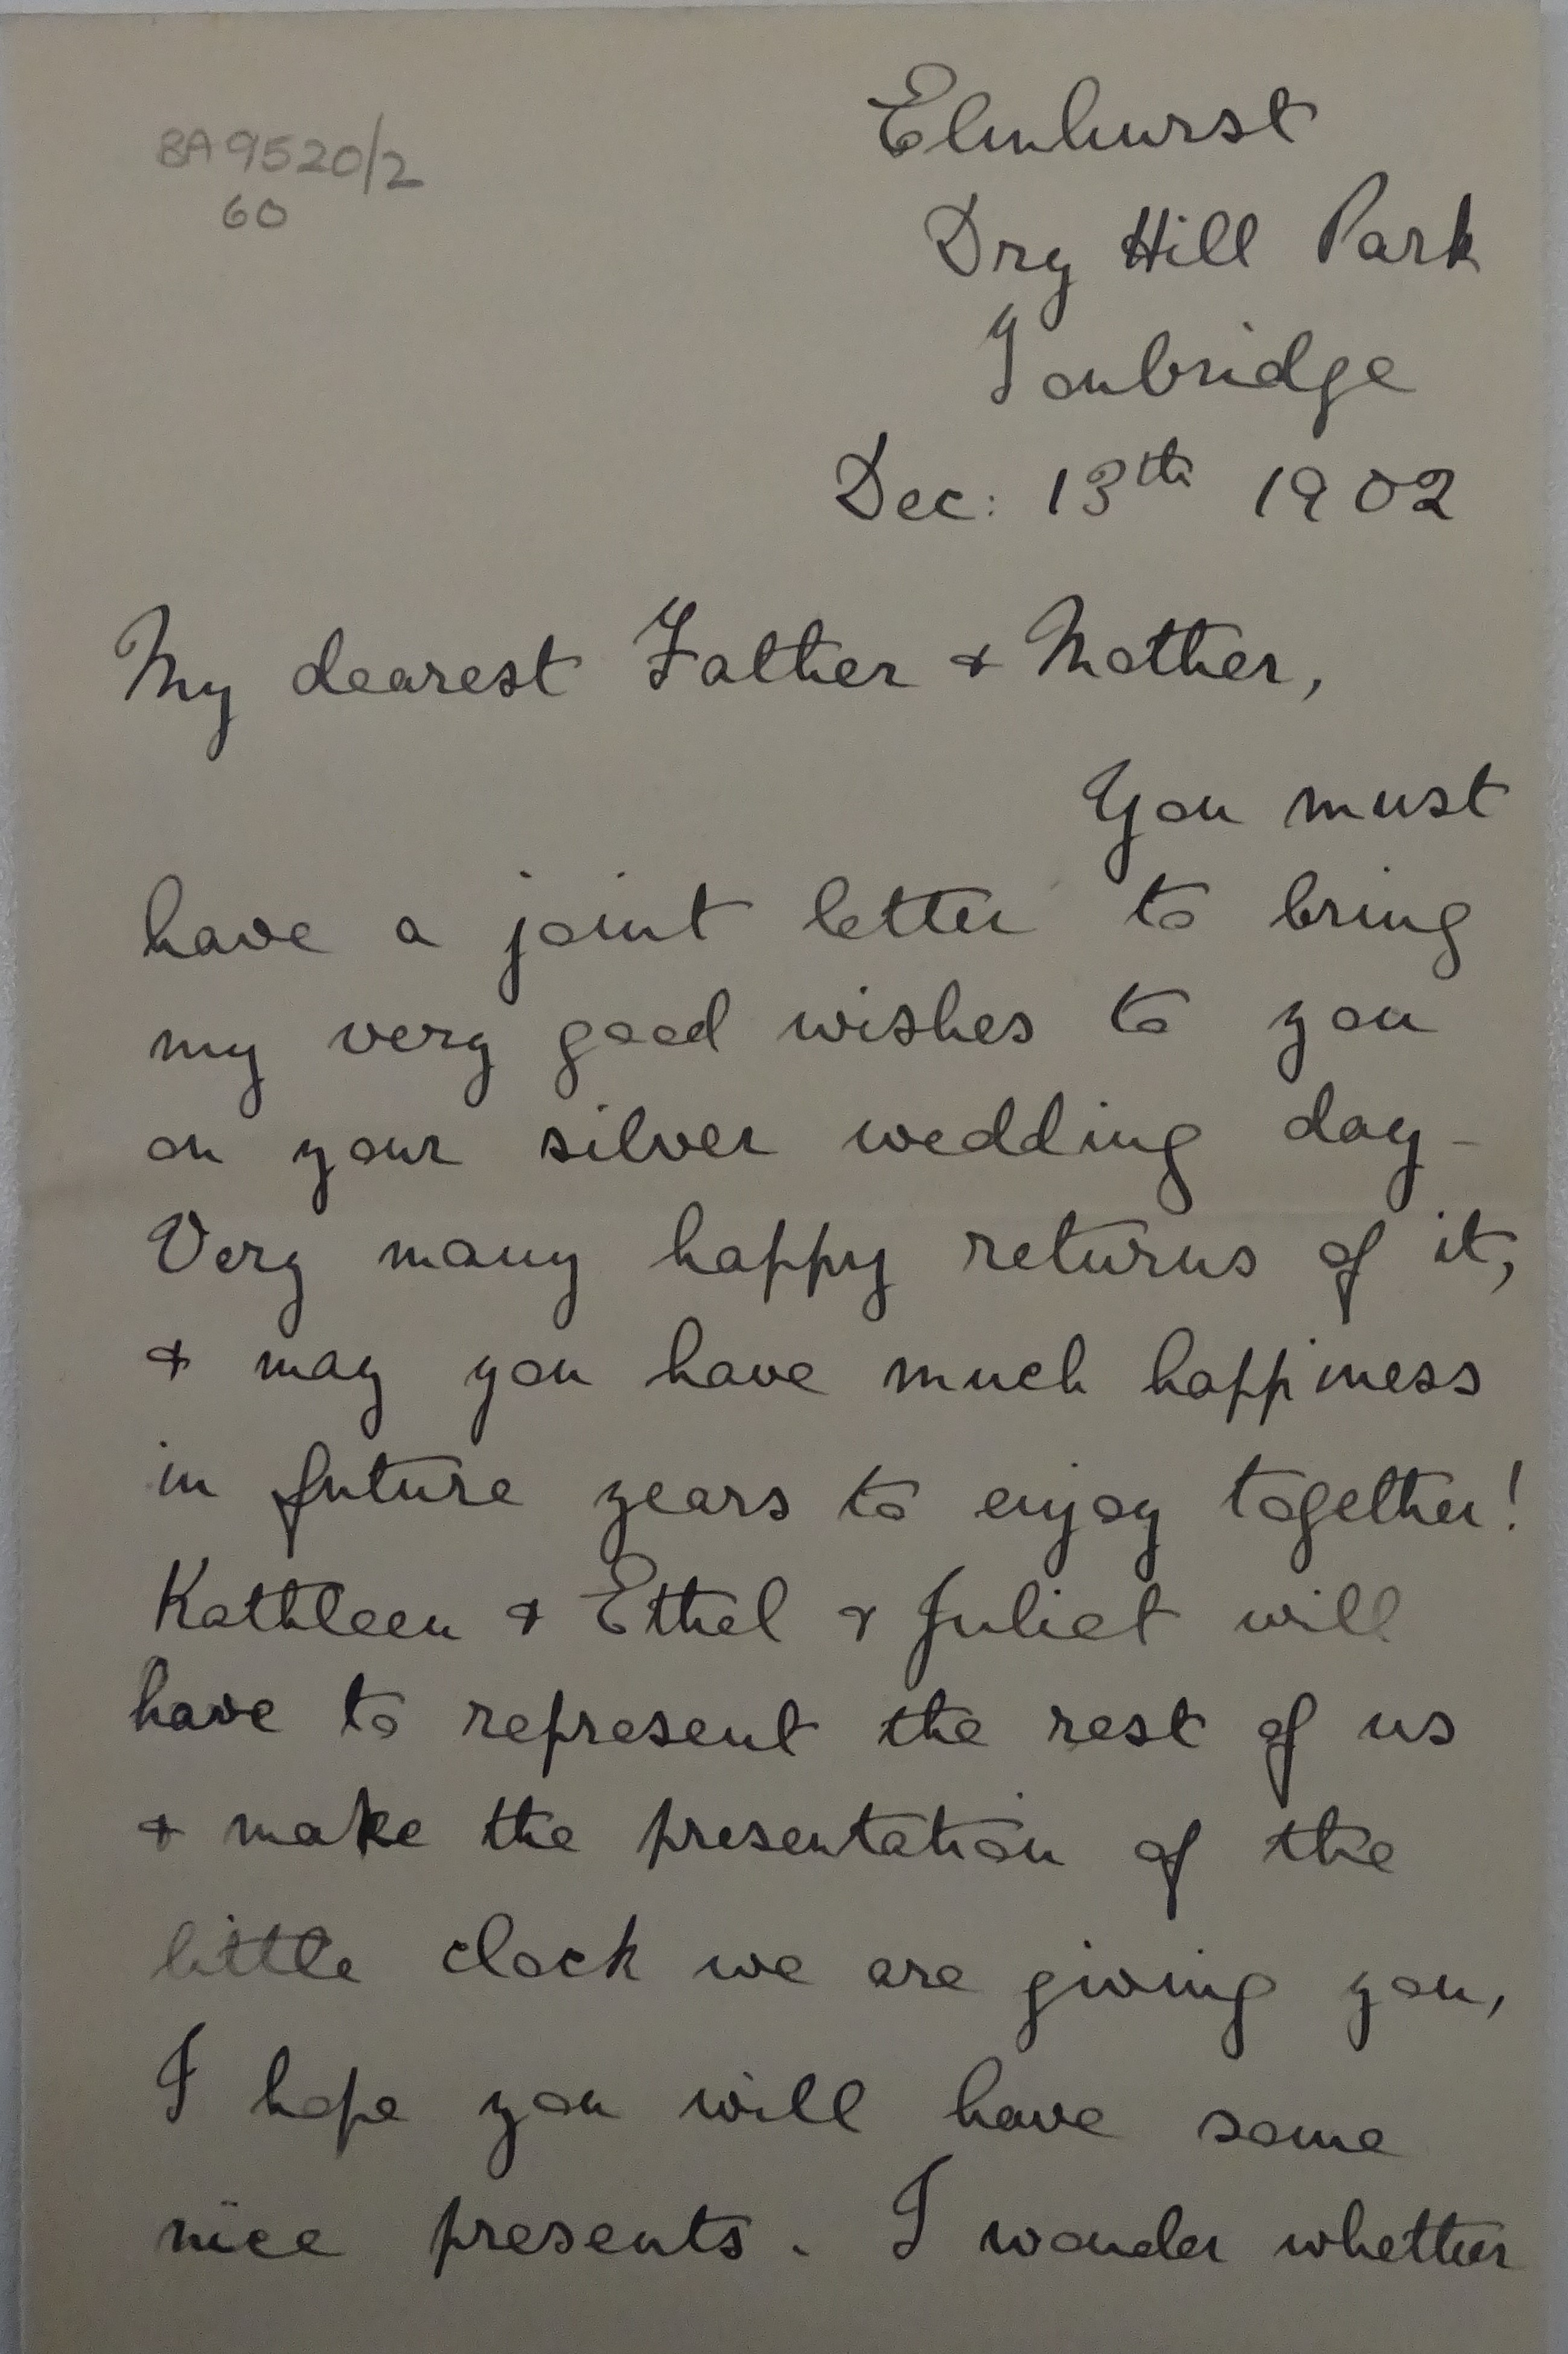 BA 9520/2
60
Elmhurst
Dry Hill Park
Tonbridge
Dec: 13th 1902
My dearest Father & Mother,
You must
have a joint letter to bring
my very good wishes to you
on your silver wedding day -
Very many happy returns of it,
& may you have much happiness
in future years to enjoy together!
Kathleen & Ethel & Juliet will
have to represent the rest of us
& make the presentation of the
little clock we are giving you,
I hope you will have some
nice presents. I wonder whether